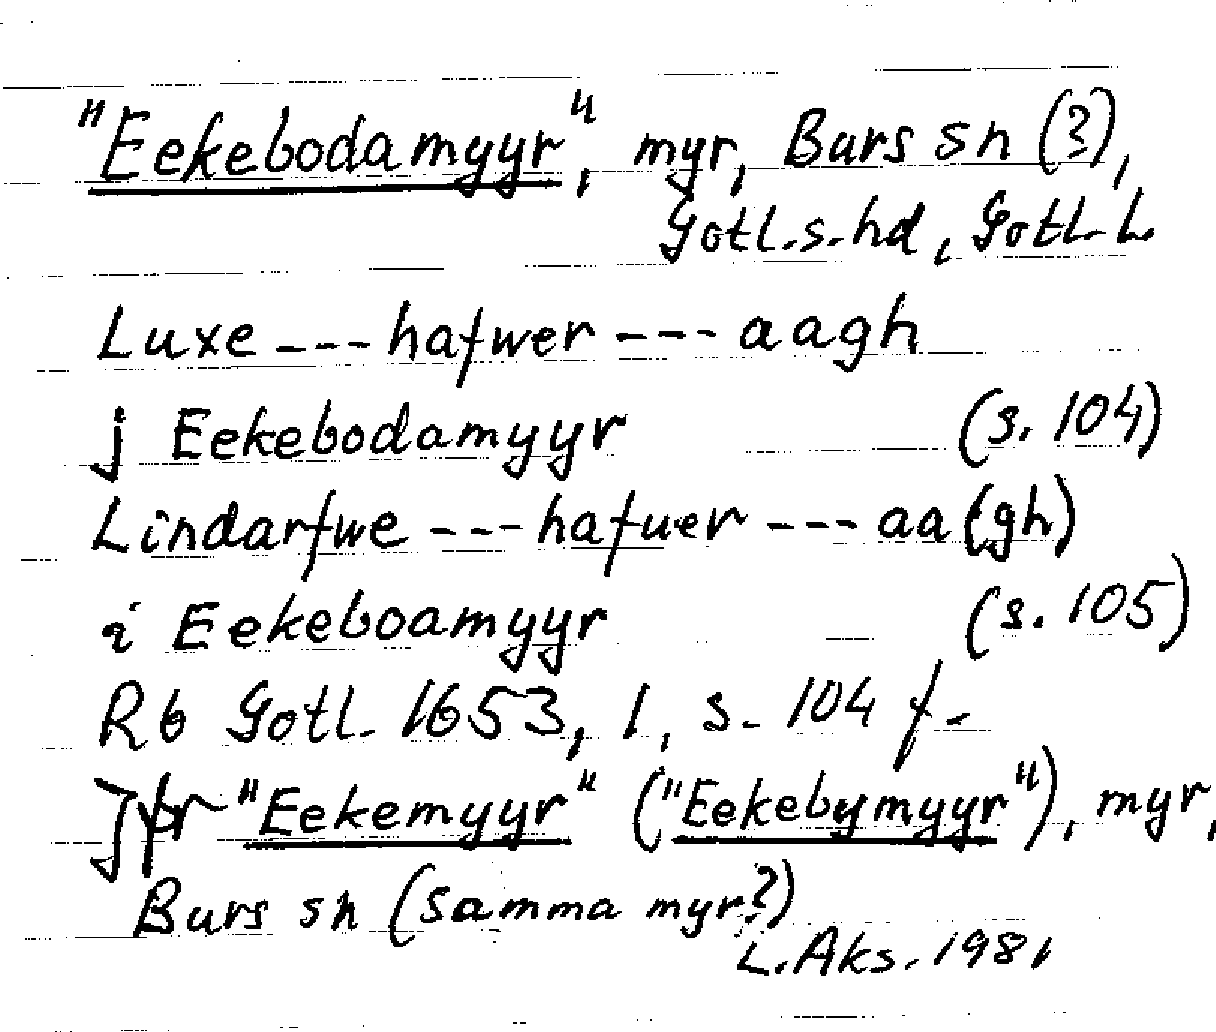 "Eekebodamyyr", myr, Burs sn (?),
Gotl.s.hd, Gotl. L.
Luxe --- hafwer --- aagh
j Eekebodamyyr (s. 104)
Lindarfwe --- hafuer --- aa(gh)
i Eekeboamyyr (s. 105)
Rb Gotl. 1653, 1, s. 104 f.
Jfr "Eekemyyr" ("Eekebymyyr"), myr,
Burs sn (samma myr?)
L. Aks. 1981